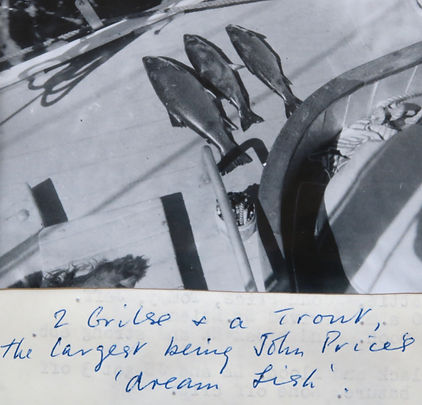 2 Grilse & a Trout,
the largest being John Price's
'dream fish'.